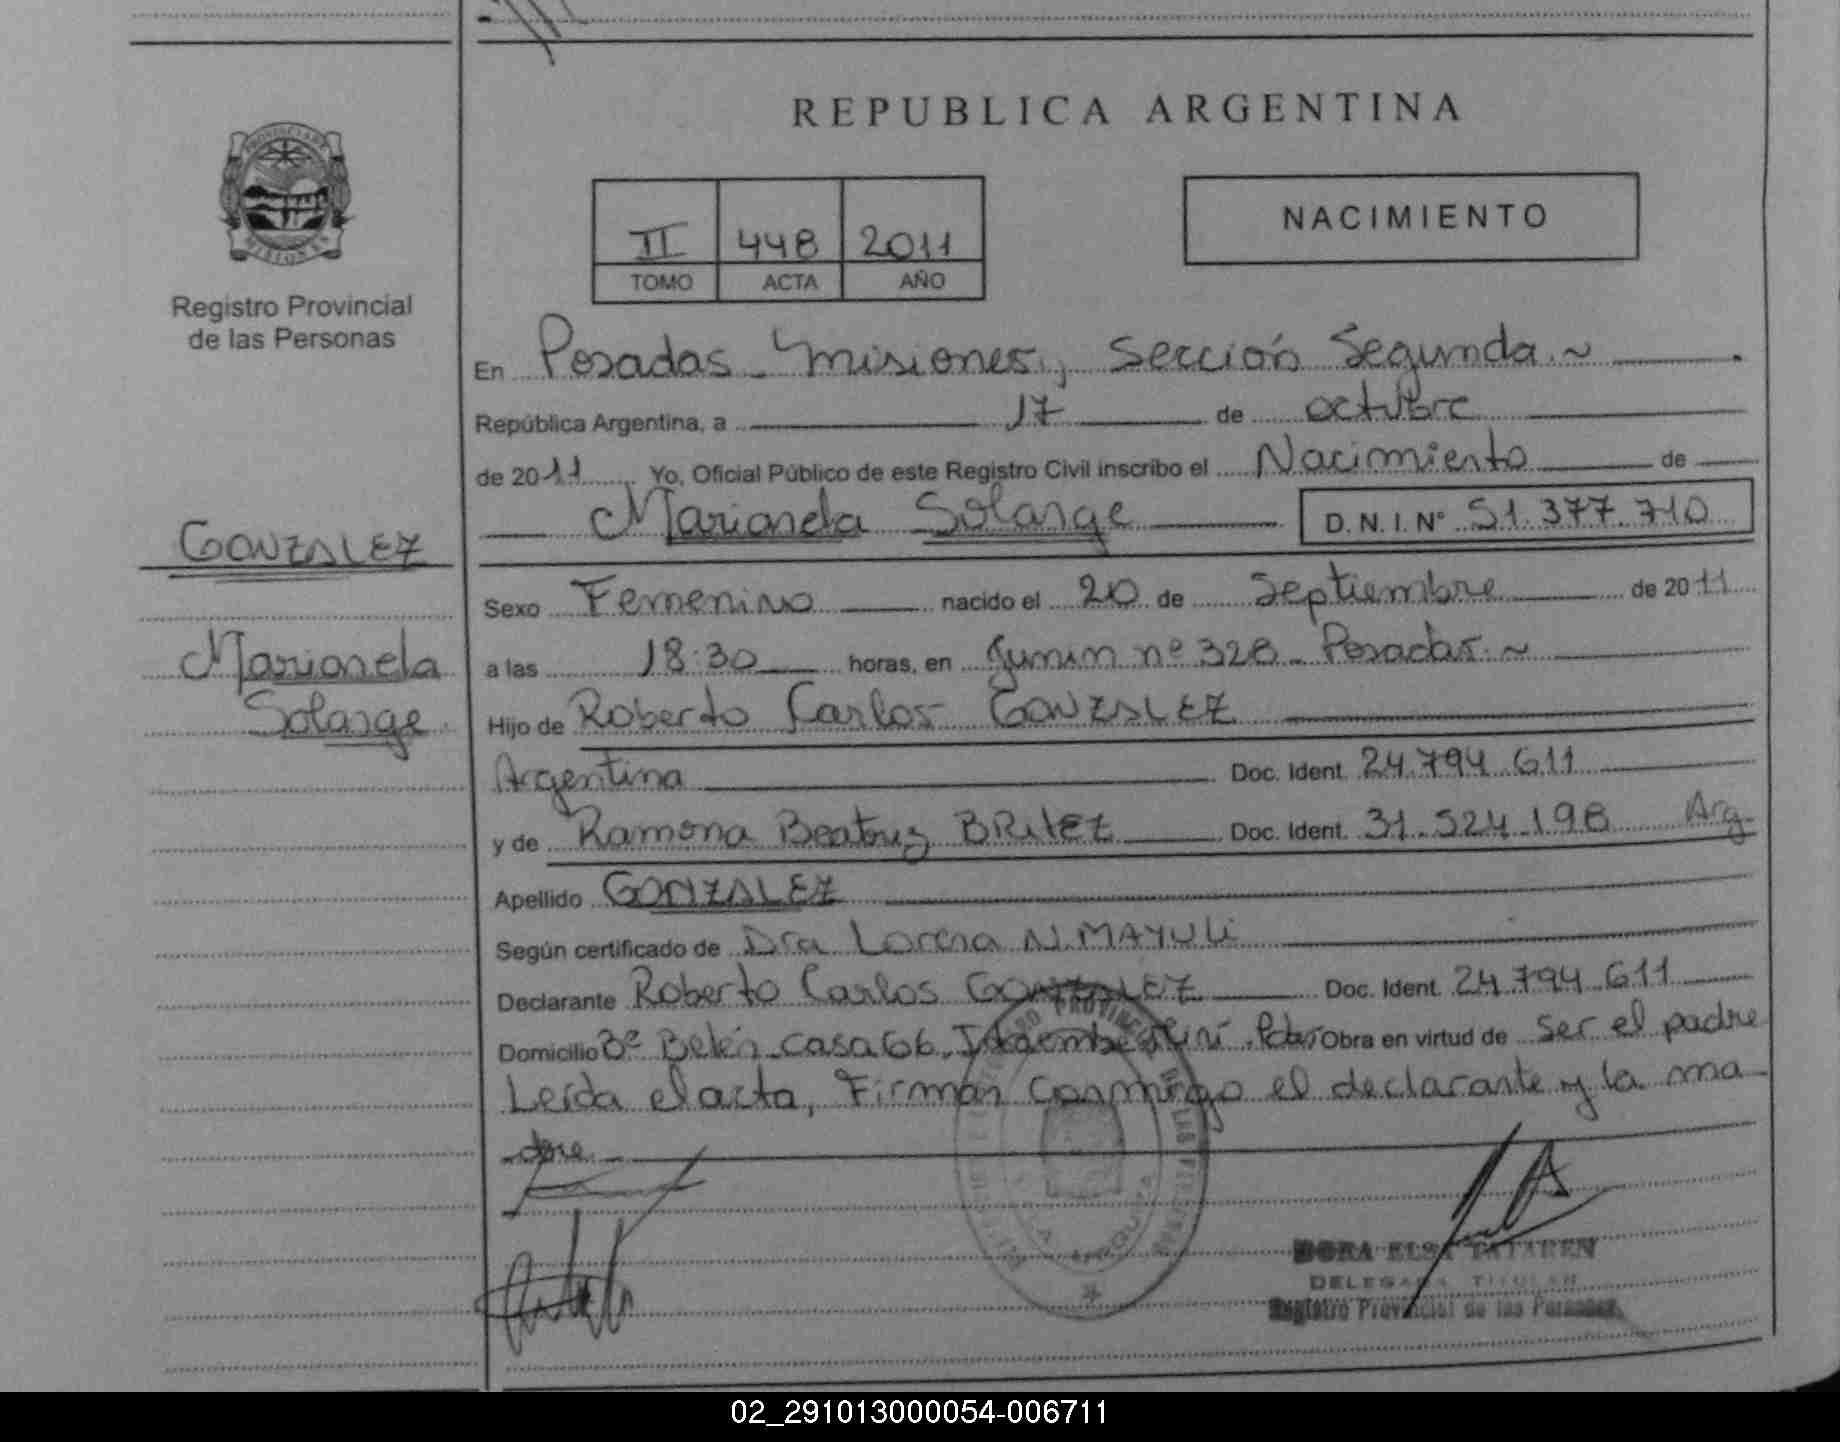 REPUBLICA ARGENTINA
NACIMIENTO
II 448 2011
TOMO ACTA AÑO
Registro Provincial
de las Personas
En Posadas - Misiones, Sección Segunda ~
República Argentina, a 17 de octubre
de 2011 Yo, Oficial Público de este Registro Civil inscribo el Nacimiento de
Marianela Solange D.N.I. N° 51.377.710
GONZALEZ
Marianela
Solange
Sexo Femenino nacido el 20 de Septiembre de 2011
a las 18:30 horas, en Junin nº 328 - Posadas ~
Hijo de Roberto Carlos GONZALEZ
Argentina Doc. Ident. 24.794.611
y de Ramona Beatriz BRITEZ Doc. Ident. 31.524.198 Arg-
Apellido GONZALEZ
Según certificado de Dra Lorena N. MAYULi
Declarante Roberto Carlos GONZALEZ Doc. Ident. 24.794.611
Domicilio Bº Belén casa 66 Itaembe Mini Obra en virtud de ser el padre
Leída el acta, Firman conmigo el declarante y la ma
dre
DORA ELSA
DELEGADA TITULAR
Registro Provincial de las Personas
02_291013000054-006711